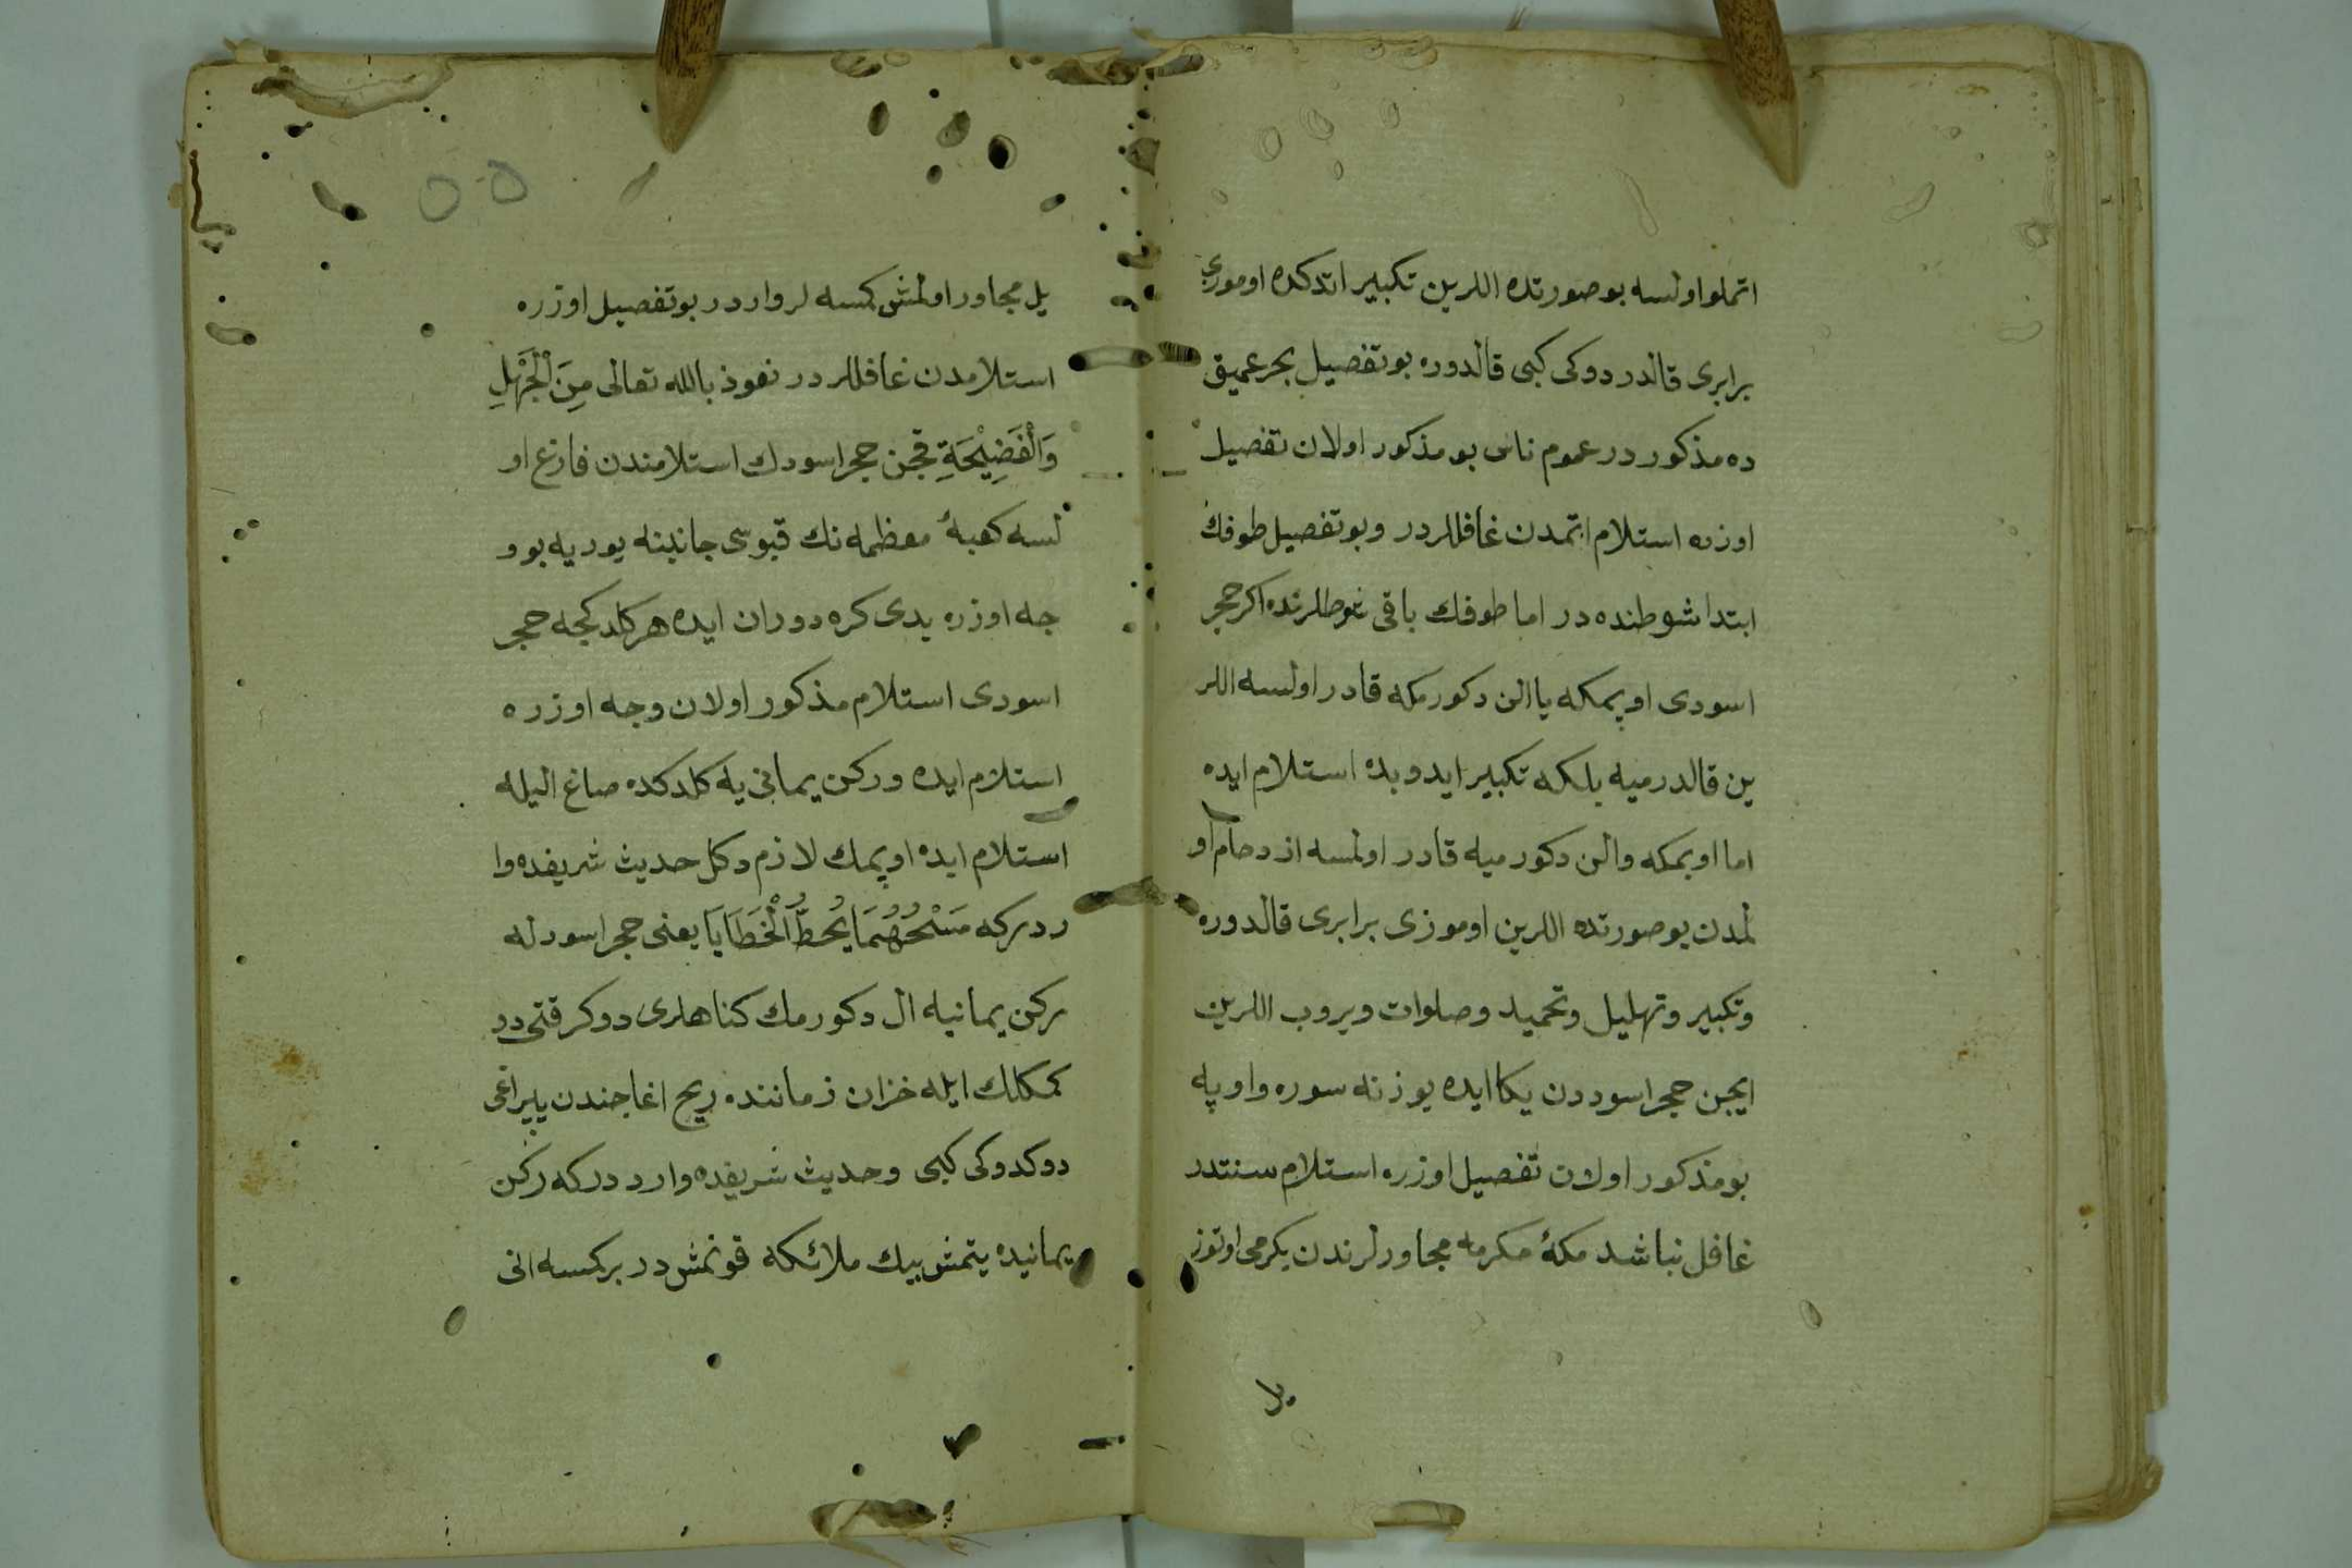 اتملو اولسه بو صورتده اللرين تكبير اتدكده اوموزى
برابرى قالدردوكى كبى قالدوره بو تفصيل بحر عميق
ده مذكور در عموم ناس بو مذكور اولان تفصيل
اوزره استلام اتمدن غافللردر و بو تفصيل طوفك
ابتدا شوطنده در اما طوفك باقى شوطلرنده اكر حجر
اسودى اوپمكه يا الن دكورمكه قادر اولسه اللر
ين قالدرميه بلكه تكبير ايدوبده استلام ايده
اما اوپمكه و الن دكورميه قادر اولمسه ازدحام او
لمدن بو صورتده اللرين اوموزى برابرى قالدوره
و تكبير و تهليل و تحميد و صلوات ويروب اللرين
ايچن حجر اسوددن يكا ايده يوزنه سوره و اوپه
بو مذكور اولان تفصيل اوزره استلام سنتدر
غافل نباشد مكۀ مكرمه مجاورلرندن يكرمى اوتوز
يل مجاور اولمش كمسه لر واردر بو تفصيل اوزره
استلامدن غافللردر نعوذ بالله تعالى مِنَ الْجَهْلِ
وَالْفَضِيْحَةِ قچن حجر اسودك استلامندن فارغ او
لسه كعبۀ معظمه نك قپوسى جانبنه يوريه بو و
جه اوزره يدى كره دوران ايده هر كلدكجه حجر
اسودى استلام مذكور اولان وجه اوزره
استلام ايده و ركن يمانى يه كلدكده صاغ اليله
استلام ايده اوپمك لازم دكل حديث شريفده وا
رد دركه مَسْحُهُمَا يُحُطُّ الْخَطَايَا يعنى حجر اسودله
ركن يمانيله ال دكورمك كناهلرى دوكر قتى دو
كمكلك ايله خزان زماننده ريح اغاجندن يپراغى
دوكدوكى كبى و حديث شريفده وارد دركه ركن
يمانيده يتمش بيك ملائكه قونمش در بر كمسه انى